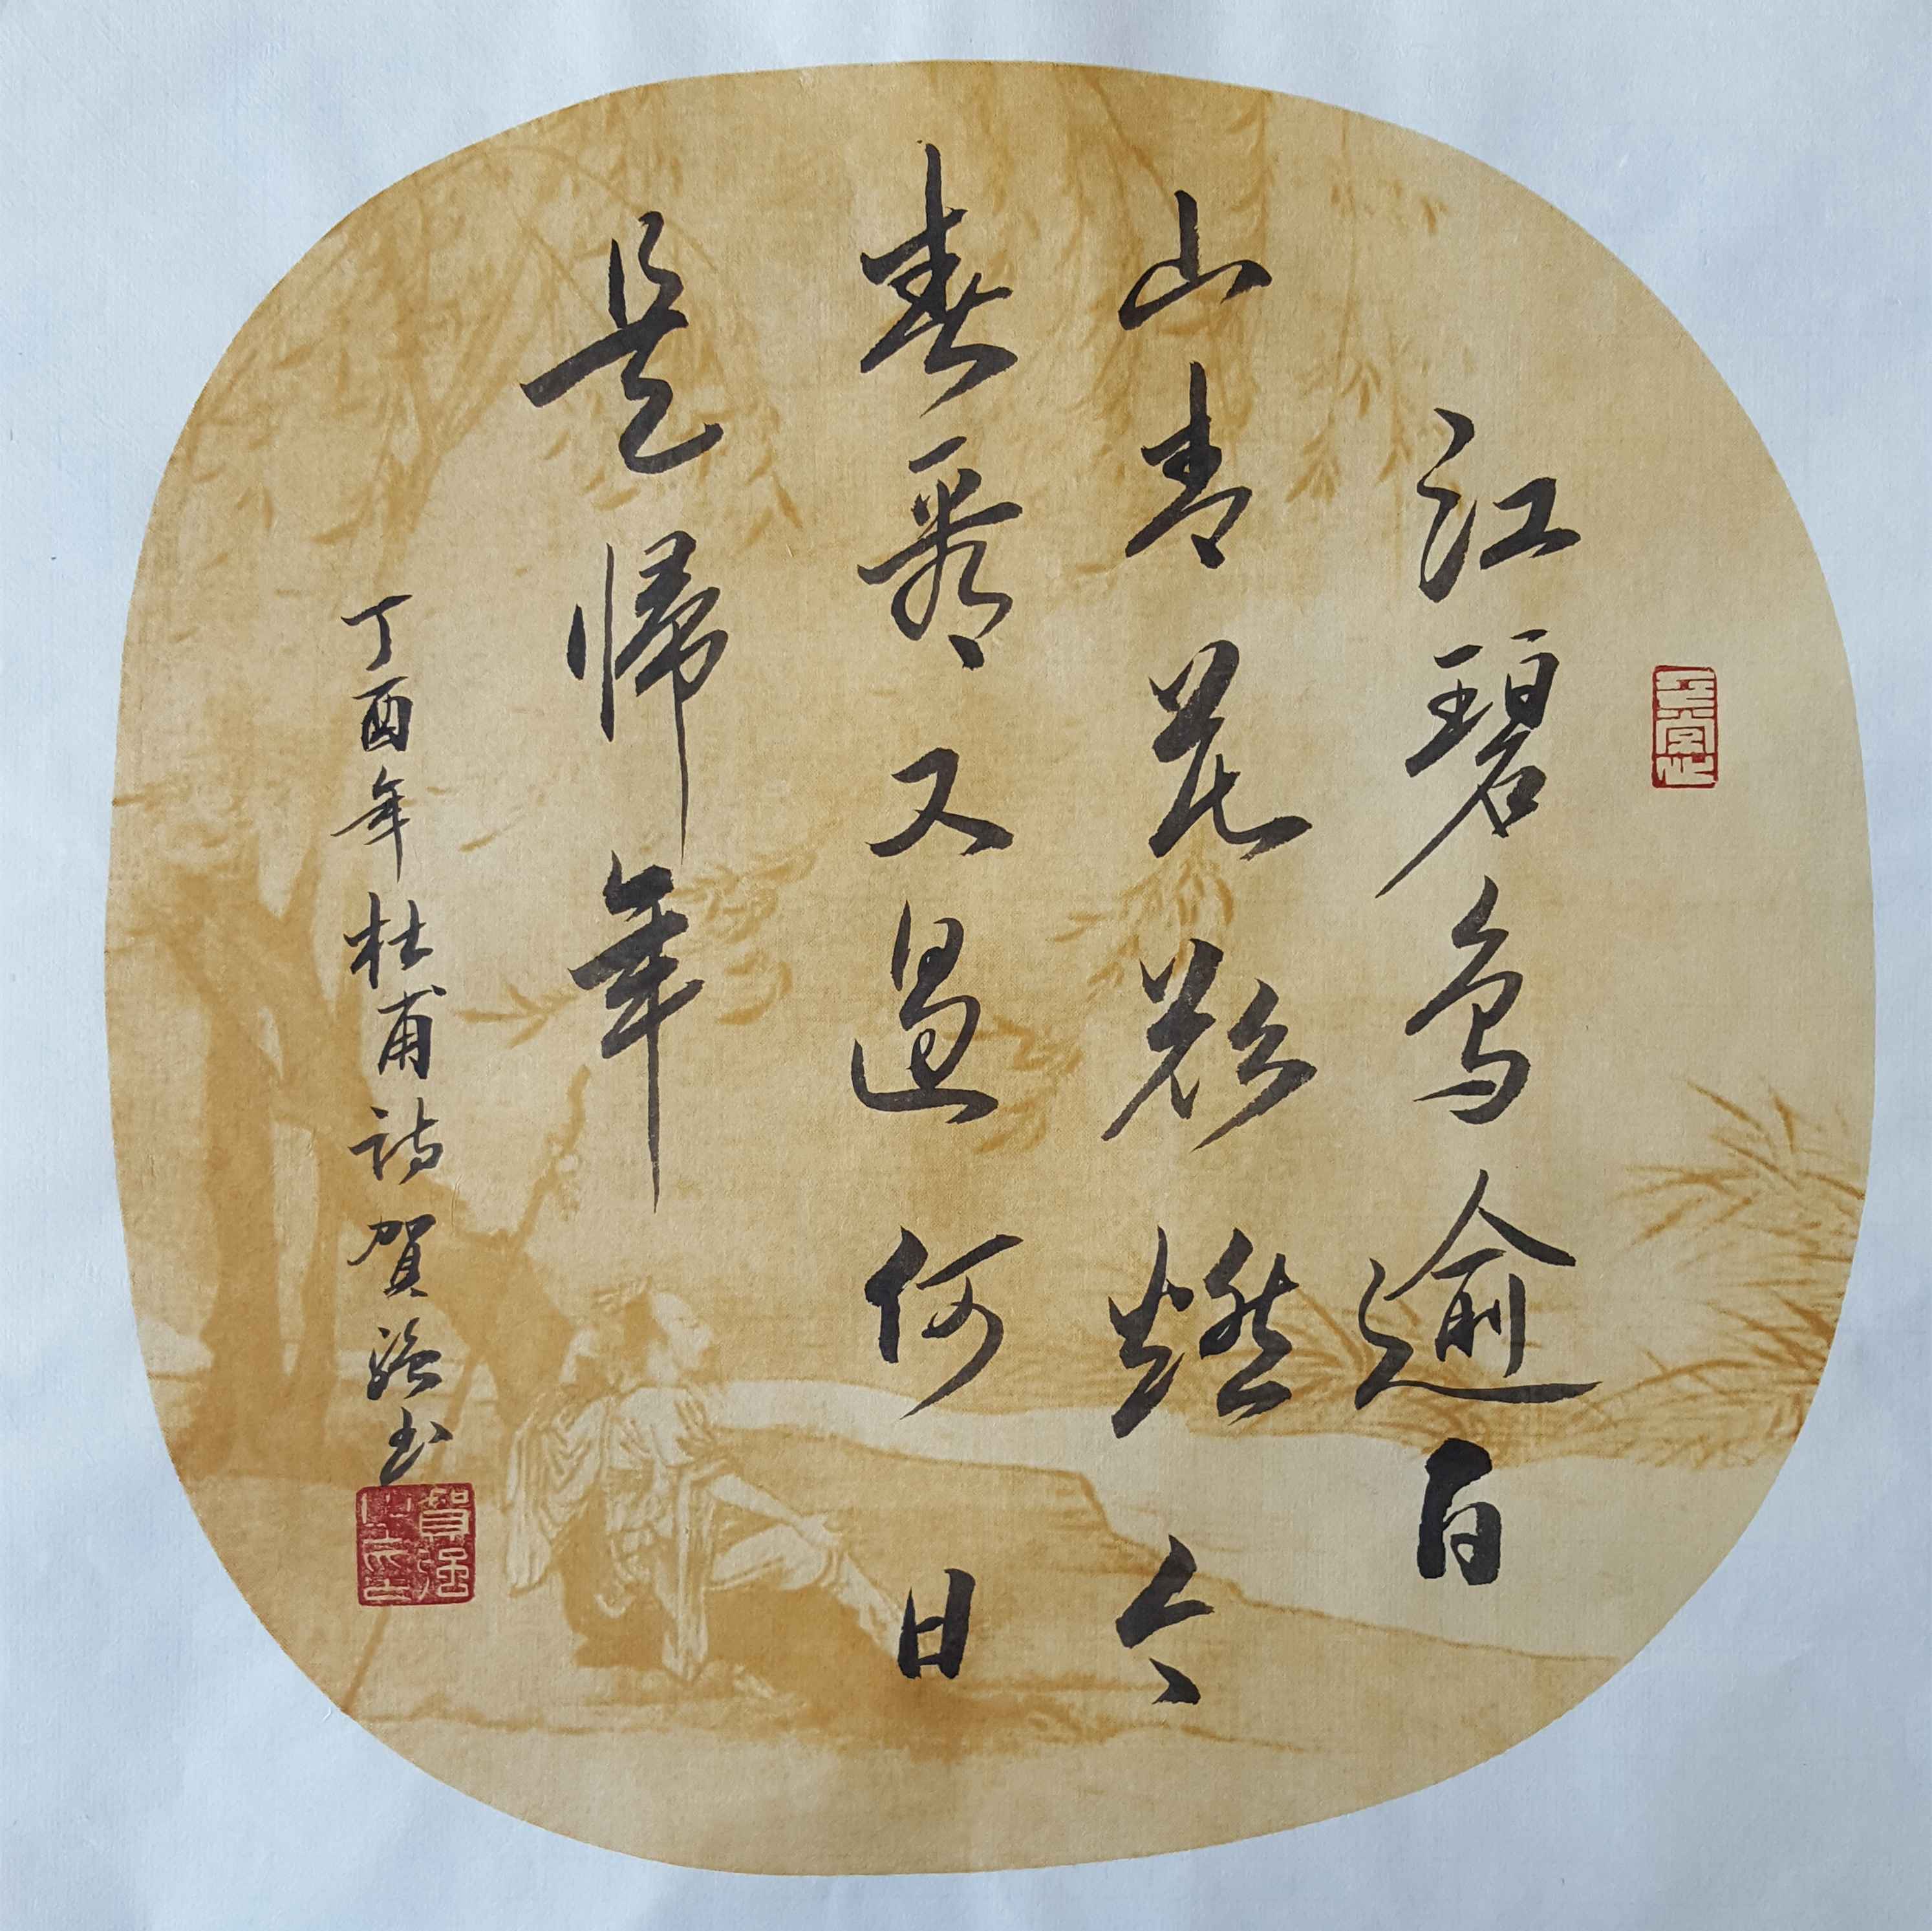 江碧鳥逾白
山青花欲燃今
春看又過何日
是帰年
丁酉年杜甫诗賀强书